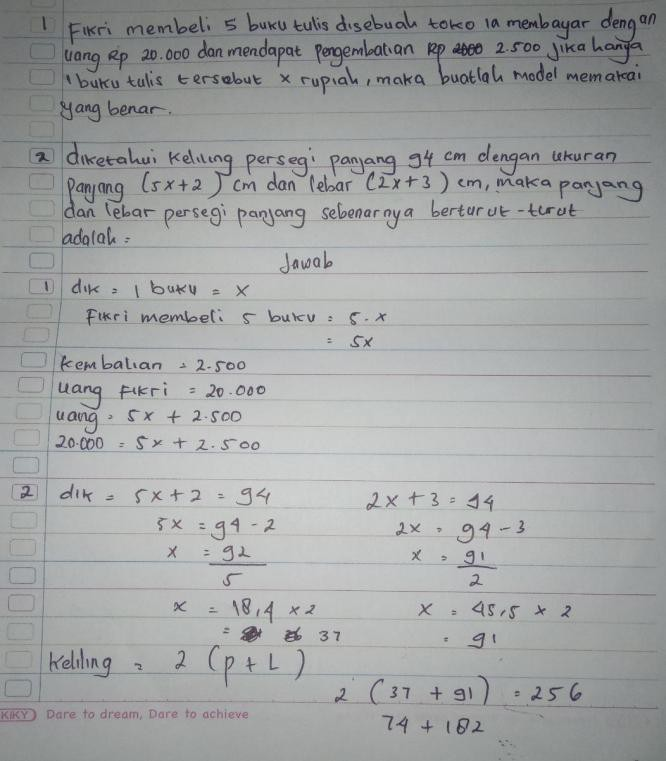 1 Fikri membeli 5 buku tulis disebuah toko ia membayar dengan
uang Rp 20.000 dan mendapat pengembalian Rp 2.500 jika hanga
1 buku tulis tersebut x rupiah, maka buatlah model memakai
yang benar.
2 diketahui keliling persegi panjang 94 cm dengan ukuran
Panjang (5x+2) cm dan lebar (2x+3) cm, maka panjang
dan lebar persegi panjang sebenarnya berturut-turut
adalah =
Jawab
1 dik = 1 buku = x
Fikri membeli 5 buku = 5.x
= 5x
kembalian = 2.500
uang Fikri = 20.000
uang = 5x + 2.500
20.000 = 5x + 2.500
2 dik = 5x+2 = 94 2x+3 = 94
5x = 94-2 2x = 94-3
x = 92 x = 91
5 2
x = 18,4 x2 x = 45,5 x 2
= 37 = 91
Keliling = 2 (P+L)
2 (37 + 91) = 256
74 + 182
KIKY Dare to dream, Dare to achieve